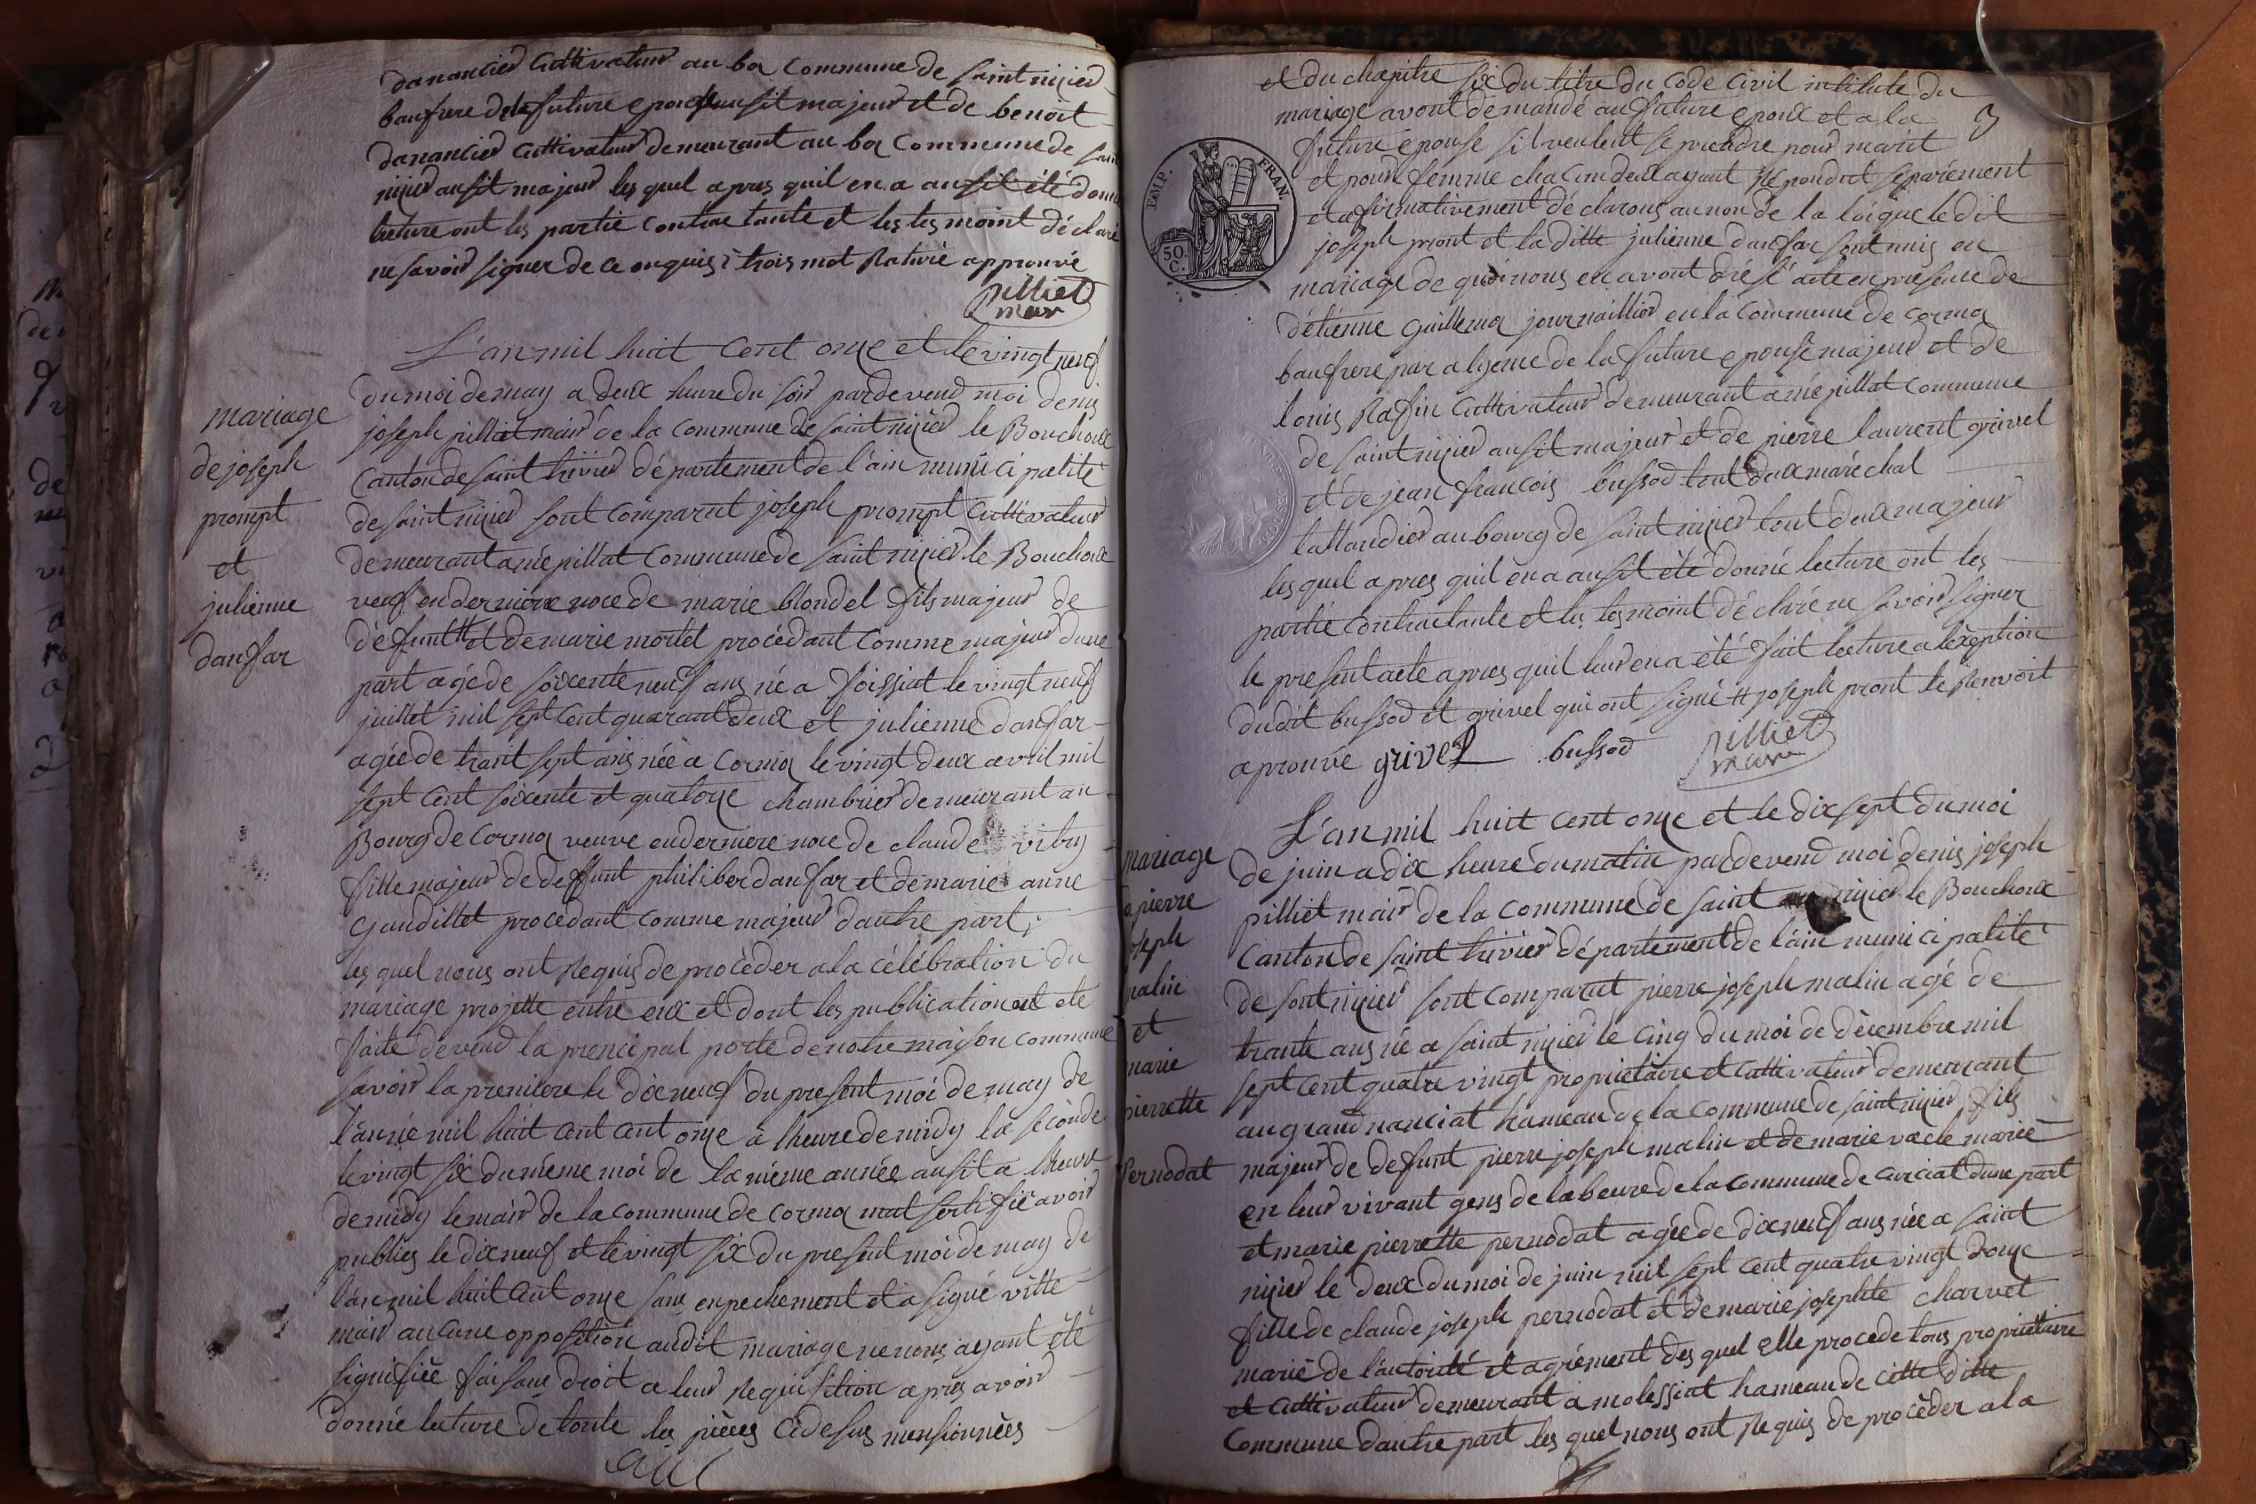 danancier Cultivateur au boz Commune de saint nizier
baufrere de la future epouse ausit majeur et de benoit
danancier cultivateur demeurant au boz Commune de saint
nizier ausit majeur les quel apres quil en a ausit été donné
lecture ont les partie Contractante et les tesmoint déclaré
ne savoir signer de ce enquis trois mot Raturé approuvé
pilliet
mair
L'an mil huit cent onze et le vingt neuf
mariage
de joseph
prompt
et
julienne
danfar
du moi de may a deux heure du soir pardevend moi denis
joseph pilliet mair de la Commune de saint nizier le Bouchoux
Canton de saint trivier département de l'ain municipalité
de saint nizier sont comparut joseph prompt Cultivateur
demeurant a mépillat Commune de saint nizier le Bouchoux
veuf en derniere noce de marie blondel fils majeur de
défunt # et de marie mortel procédant Comme majeur dune
part agé de soixente neuf ans né a foissiat le vingt neuf
juillet mil sept cent quarant deux et julienne danfar
agée de trant sept ans née a Cormoz le vingt deux avril mil
sept cent soixente et quatorze chambrier demeurant au
Bourg de Cormoz veuve en derniere noce de claude vitry
fille majeur de deffunt philiber danfar et de marie anne
gaudillet procedant comme majeur dautre part,
les quel nous ont Requis de procèder a la célébration du
mariage projetté entre eux et dont les publication ont eté
faite devend la prencipal porte de notre maison commune
savoir la premiere le dix neuf du present moi de may de
l'année mil huit cent cent onze a lheure de midy la séconde
le vingt six du méme moi de la méme année ausit a lheure
de midy le mair de la Commune de cormoz mat sertifié avoir
publies le dix neuf et le vingt six du present moi de may de
l'an mil huit cent onze sans enpechement et a signé vitte
mair aucune opposition audit mariage ne nous ayant été
signifiée faisant droit a leur Requisition apres avoir
donné lecture de toute les pièces cidesus mensionnées
et du chapitre six du titre du Code Civil intitule du
mariage avont demandé au future epoux et a la
3
future épouse sil veulent se prendre pour marit
et pour femme chacun deux ayant Répondut séparément
et afirmativement déclarons au nom de la loi que le dit
joseph pront et la ditte julienne danfar sont unis en
mariage de quoi nous en avont drésé acte en presence de
EMP. FRAN.
50
C.
détienne guillemoz journaillier en la Commune de cormoz
baufrere par alyence de la future epouse majeur et de
louis Rafin Cultivateur demeurant a mépillat commune
de saint nizier ausit majeur et de pierre laurent grivel
et de jean françois bussod tout deux maréchal
tallandier au bourg de saint nizier tout deux majeur
les quel apres quil en a ausit été donné lecture ont les
partie Contractante et les tesmoint déclaré ne savoir signer
le present acte apres quil leur en a été fait lecture a lexeption
dudit bussod et grivel qui ont signé # joseph pront le Renvoit
aprouvé grivel bussod pilliet
mair
L'an mil huit cent onze et le dix sept du moi
mariage
de pierre
joseph
malin
et
marie
pierrette
Pernodat
de juin a dix heure du matin pardevend moi denis joseph
pilliet mair de la commune de saint nizier le Bouchoux
Canton de saint trivier département de l'ain municipalité
de sont nizier sont comparut pierre joseph malin agé de
trante ans né a saint nizier le cinq du moi de décembre mil
sept cent quatre vingt propriétaire et cultivateur demeurant
au grand nanciat hameau de la Commune de saint nizier fils
majeur de defunt pierre joseph malin et de marie vacle marié
en leur vivant gens de labeure de la commune de curciat dune part
et marie pierrette pernodat agée de dix neuf ans née a saint
nizier le deux du moi de juin mil sept cent quatre vingt douze
fille de claude joseph pernodat et de marie josephte charvet
marié de l'autorité et agrément des quel elle procede tous propriétaire
et cultivateur demeurant a molessiat hameau de cette ditte
Commune dautre part les quel nous ont Requis de procèder a la